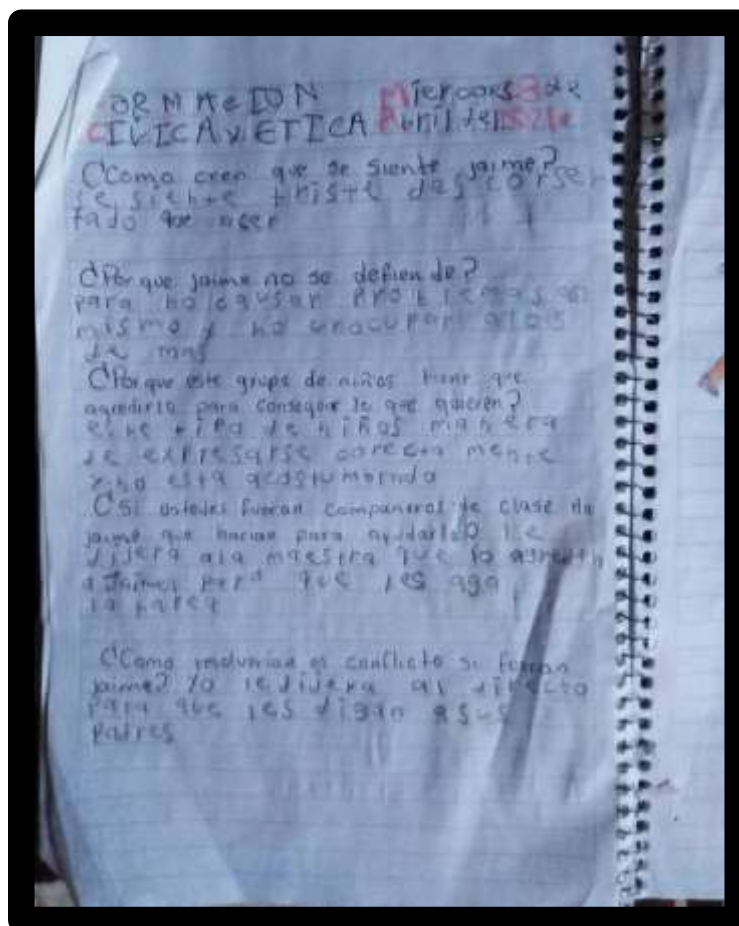 ORMACION Miercoles 3 de
CIVICA Y ETICA Abril del
¿Como creen que se siente jaime?
se siente triste
tado que acer
¿Por que jaime no se defiende?
para no causar problemas asi
mismo y no
de mas
¿Porque este grupo de niños tiene que
agredirlo para conseguir lo que quieren?
tipo de niños manera
de expresarse corecta mente
y no esta acostumbrado
¿Si ustedes fueran compañeros de clase de
jaime que harian para ayudarlo? le
dijera ala maestra que lo agreden
a Jaime para que les aga
la tarea
¿Como resolverian el conflicto si fueran
jaime? Yo le dijera al directo
para que les digan asus
Patres